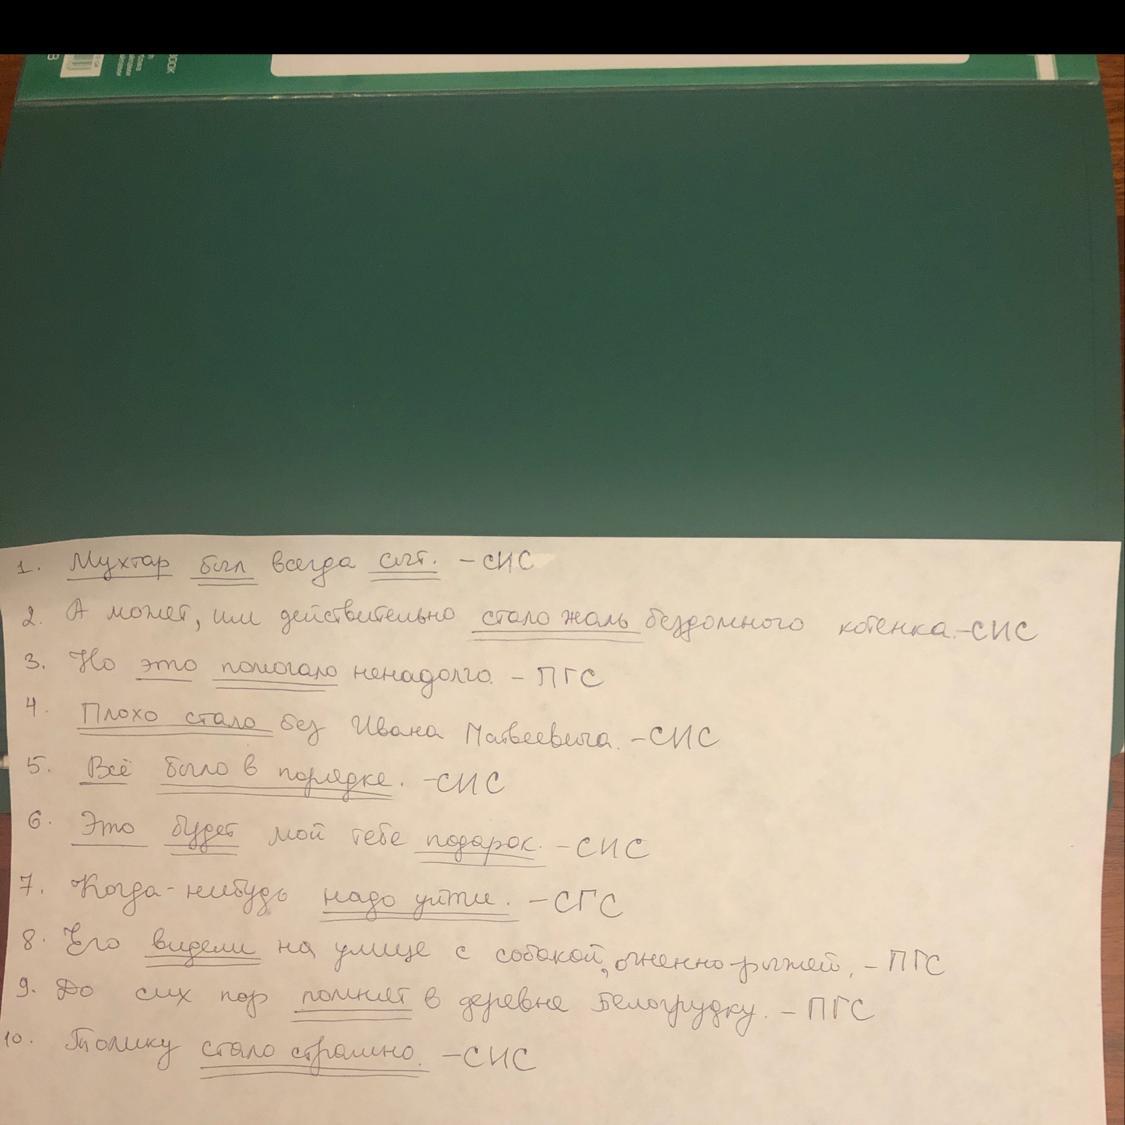 BOOK
1. Мухтар был всегда сыт. - СИС
2. А может, им действительно стало жаль бездомного котенка. - СИС
3. Но это помогало ненадолго. - ПГС
4. Плохо стало без Ивана Матвеевича. - СИС
5. Всё было в порядке. - СИС
6. Это будет мой тебе подарок. - СИС
7. Когда-нибудь надо уйти. - СГС
8. Его видели на улице с собакой, огненно-рыжей. - ПГС
9. До сих пор помнят в деревне Белогрудку. - ПГС
10. Толику стало страшно. - СИС